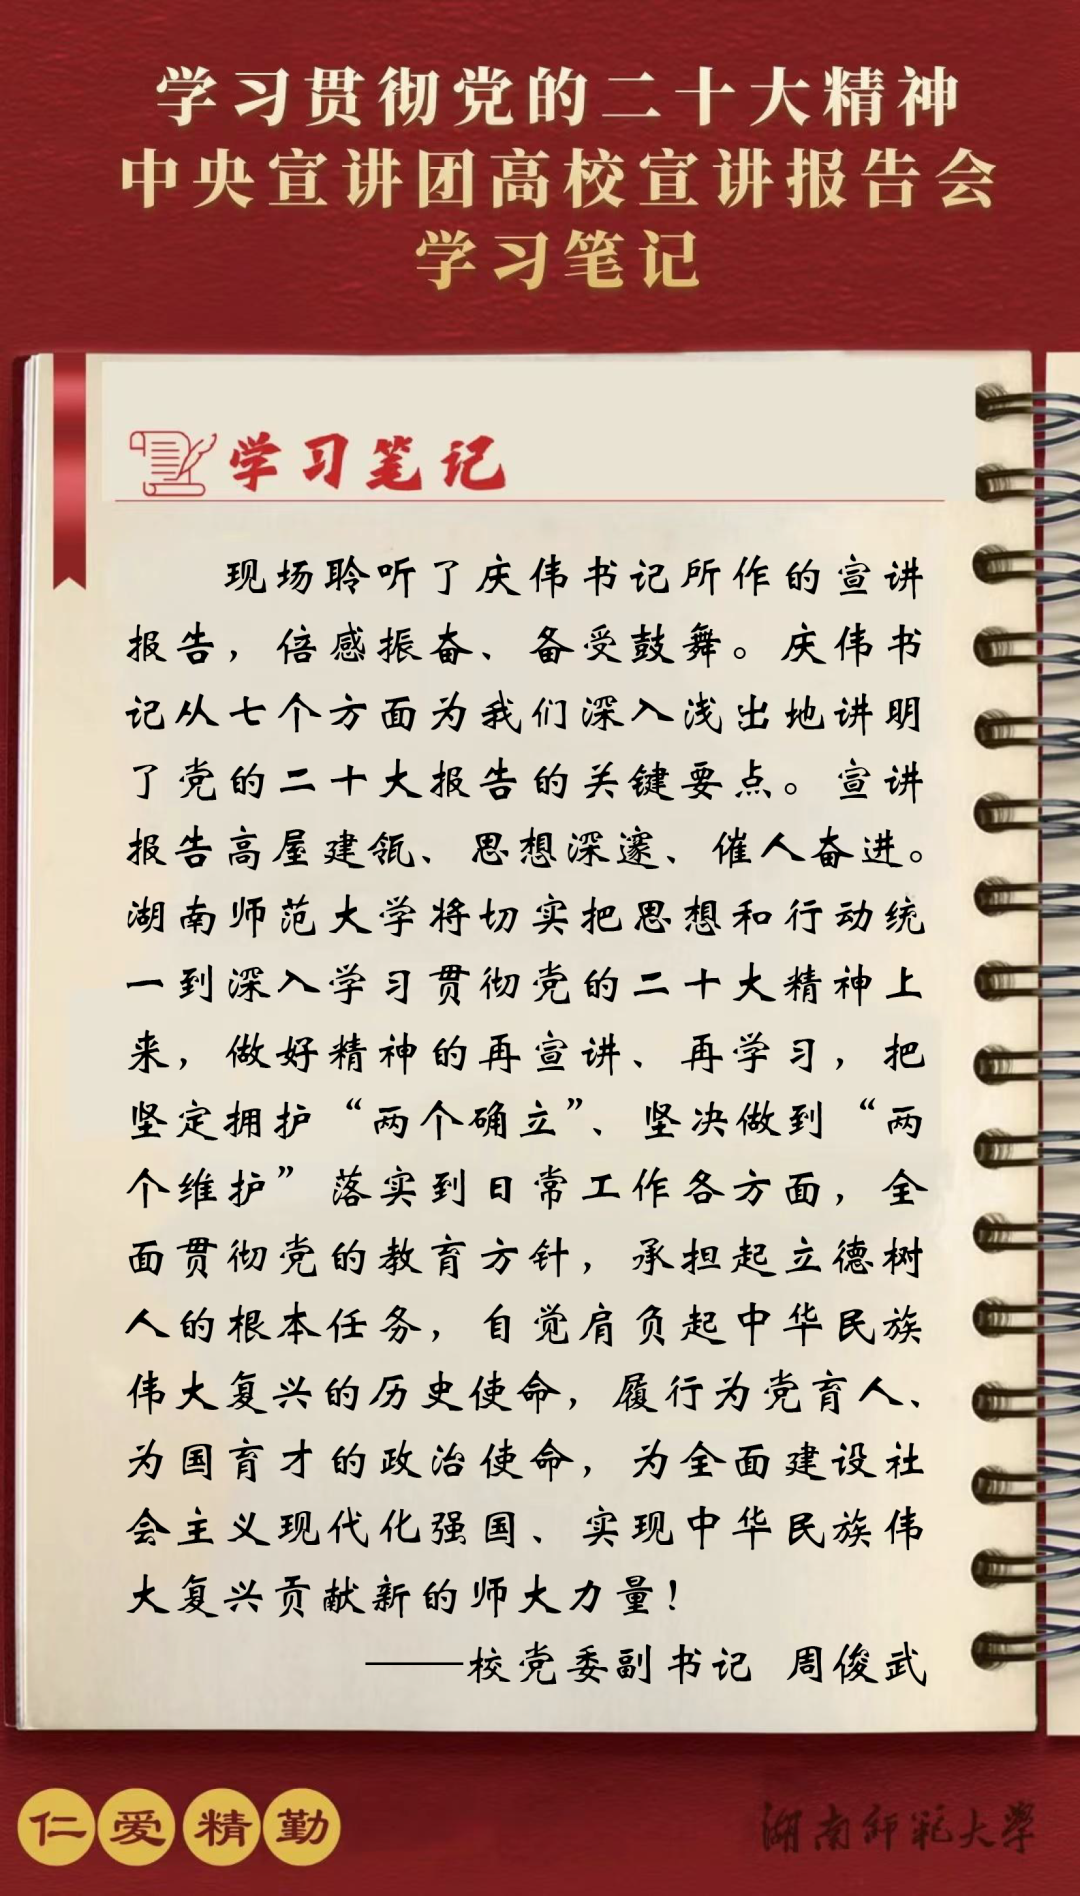 学习贯彻党的二十大精神
中央宣讲团高校宣讲报告会
学习笔记
学习笔记
现场聆听了庆伟书记所作的宣讲
报告，倍感振奋、备受鼓舞。庆伟书
记从七个方面为我们深入浅出地讲明
了党的二十大报告的关键要点。宣讲
报告高屋建瓴、思想深邃、催人奋进。
湖南师范大学将切实把思想和行动统
一到深入学习贯彻党的二十大精神上
来，做好精神的再宣讲、再学习，把
坚定拥护“两个确立”、坚决做到“两
个维护”落实到日常工作各方面，全
面贯彻党的教育方针，承担起立德树
人的根本任务，自觉肩负起中华民族
伟大复兴的历史使命，履行为党育人、
为国育才的政治使命，为全面建设社
会主义现代化强国、实现中华民族伟
大复兴贡献新的师大力量！
——校党委副书记 周俊武
仁爱精勤
湖南师范大学